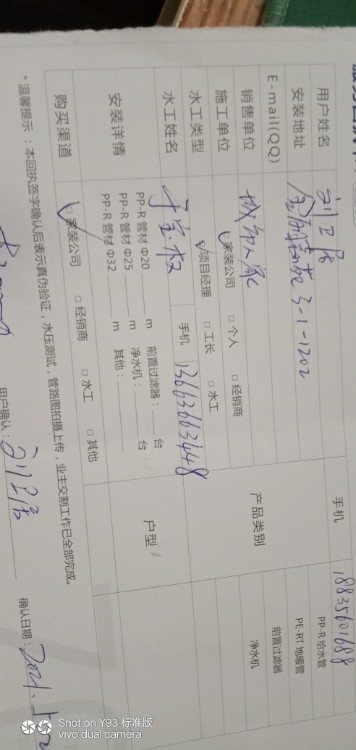 用户姓名 刘卫居 手机 18835601688
安装地址 3-1-1202 PP-R 给水管
E-mail(QQ) PE-RT 地暖管
销售单位 城市人家 产品类别 前置过滤器
施工单位 家装公司 □ 个人 □ 经销商 净水机
水工类型 项目经理 □ 工长 □ 水工
水工姓名 手机 13663663448
安装详情 PP-R 管材 Φ20 m 前置过滤器: 台 户型
PP-R 管材 Φ25 m 净水机: 台
PP-R 管材 Φ32 m 其他:
购买渠道 家装公司 □ 经销商 □ 水工 □ 其他
*温馨提示:本回执签字确认后表示真伪验证,水压测试,管路图拍摄上传,业主交割工作已全部完成。
用户确认: 刘卫居 确认日期: 2021.
Shot on Y93 标准版
vivo dual camera